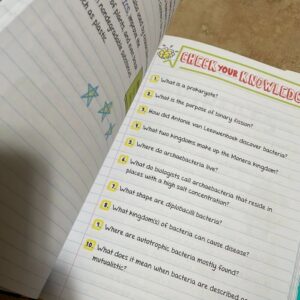 such as plastic.
nondegradable
CHECK YOUR KNOWLEDGE
1. What is a prokaryote?
2. What is the purpose of binary fission?
3. How did Antonie van Leeuwenhoek discover bacteria?
4. What two kingdoms make up the Monera kingdom?
5. Where do archaebacteria live?
6. What do biologists call archaebacteria that reside in
places with a high salt concentration?
7. What shape are diplobacilli bacteria?
8. What kingdom(s) of bacteria can cause disease?
9. Where are autotrophic bacteria mostly found?
10. What does it mean when bacteria are described as
mutualistic?